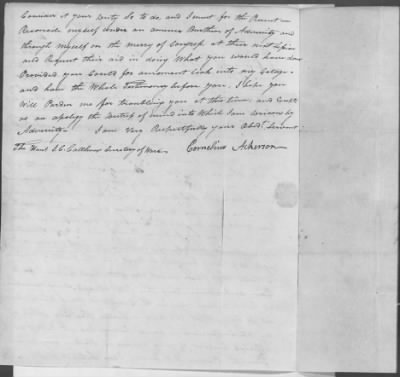 Consider it your duty So to do, and I must for the Present
Reconcile myself under an
through myself on the mercy of Congress at their next Session
and Request their aid in doing What you would have done
Provided your could for amoment Look into my
and have the Whole Testimony before you. I hope you
Will Pardon me for troubling you at this time, and
as an apology the of mind into Which I am driven by
Adversity. I am Very Respectfully your Obdt. Servant
The Honl J. C. Calhoun Secretary of War Cornelius Ackerson